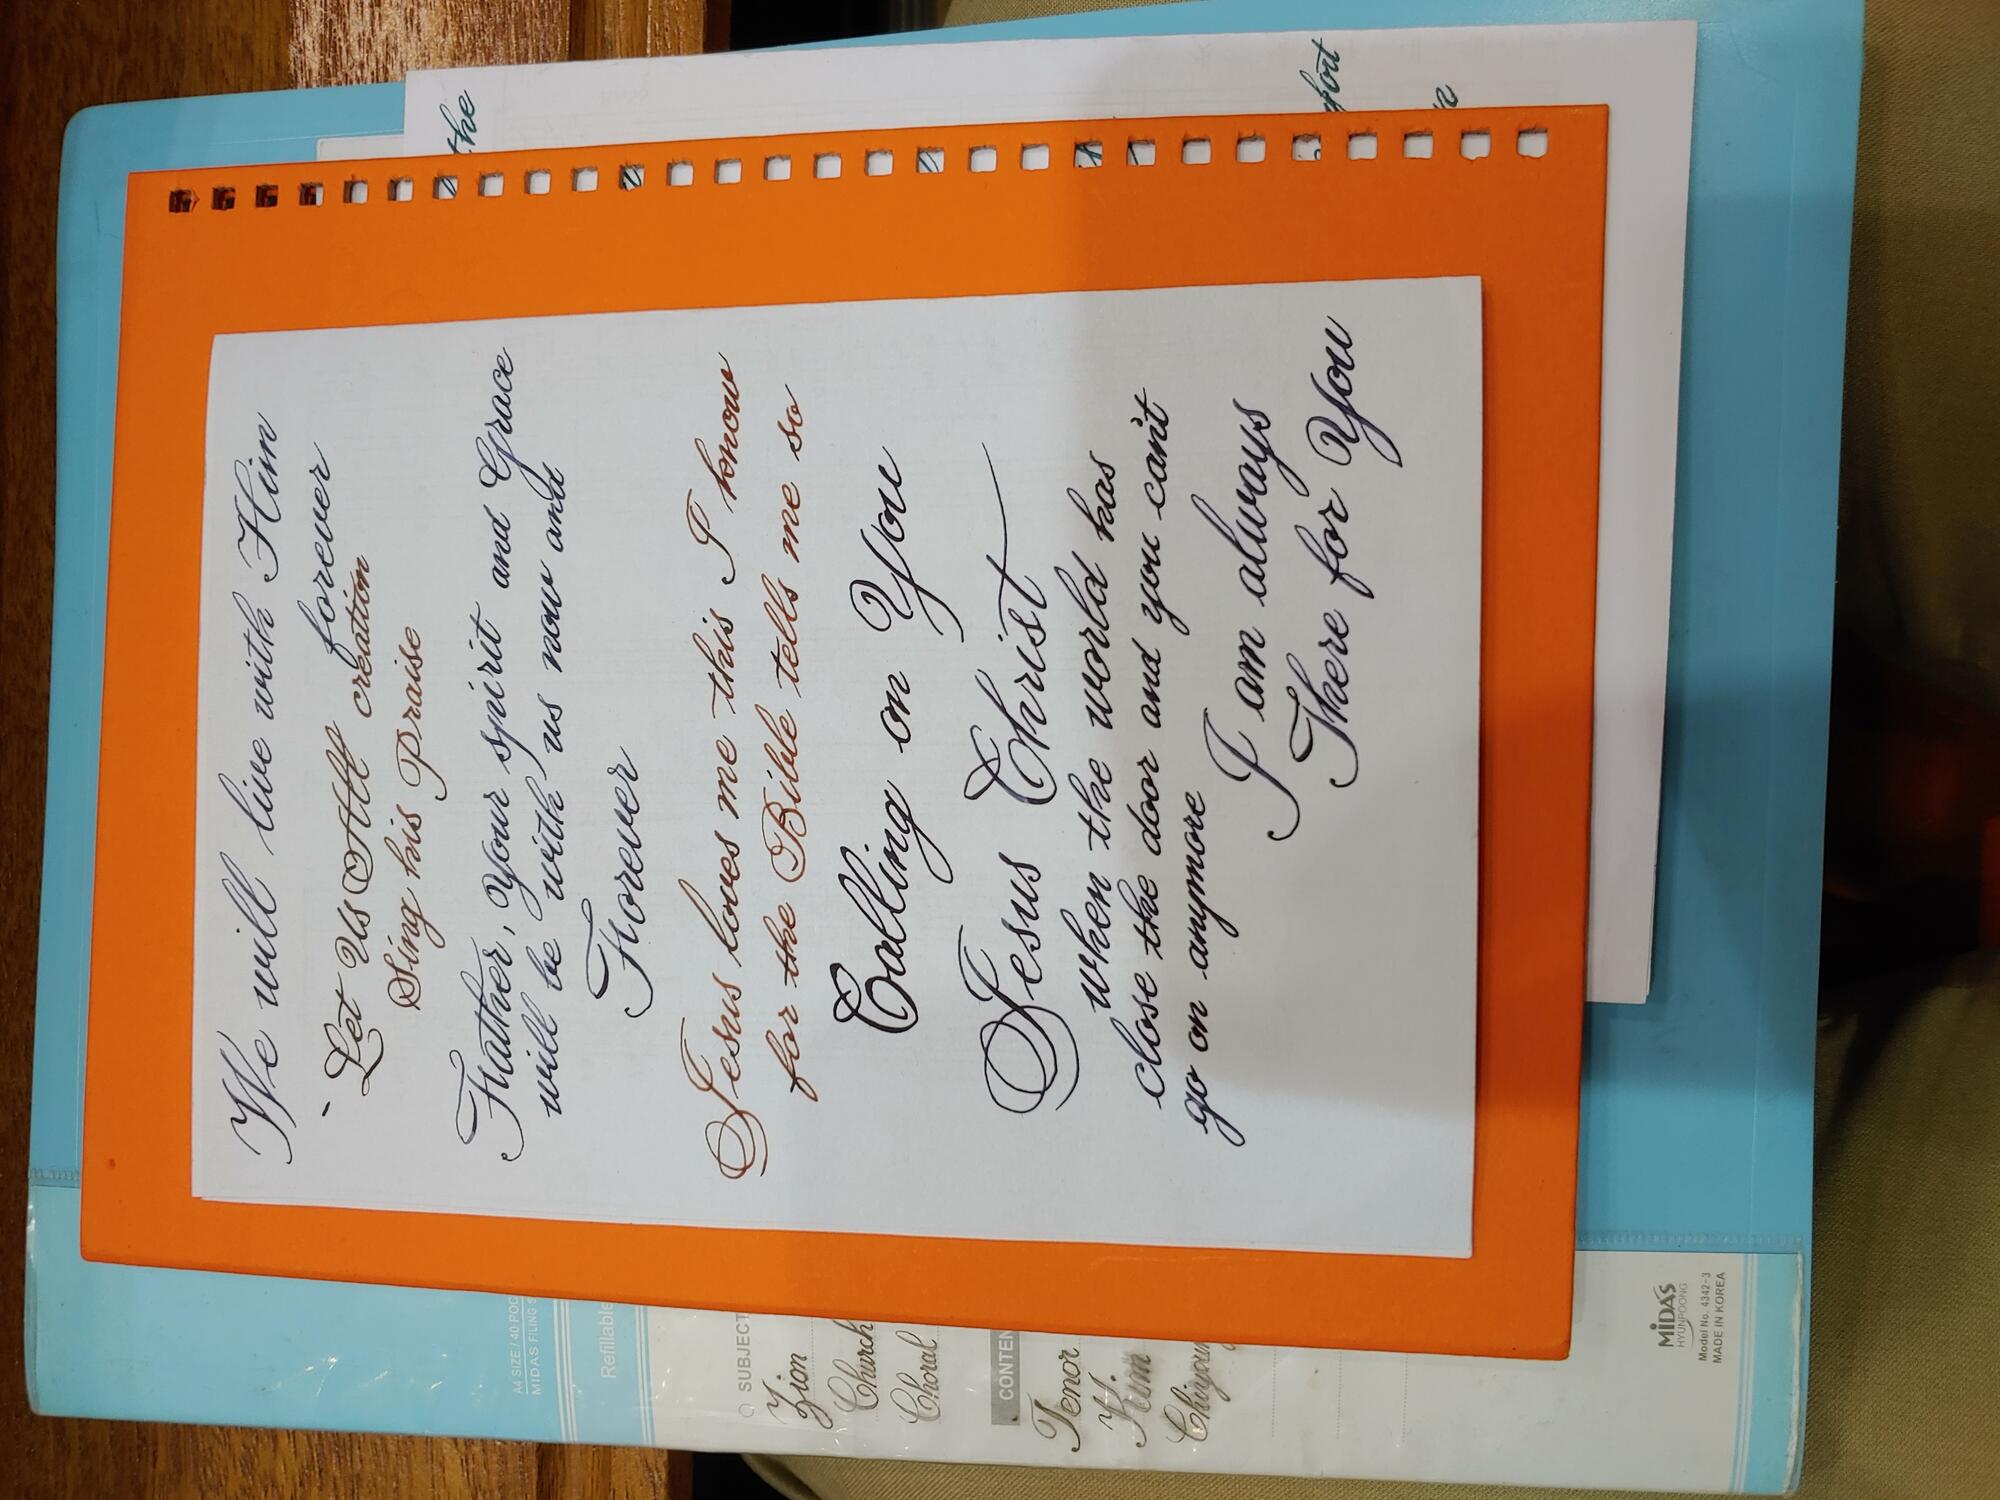 We will live with Him
forever
Let Us All creation
Sing his Praise
Father, Your spirit and Grace
will be with us now and
Forever
Jesus loves me this I know
for the Bible tells me so
Calling on You
Jesus Christ
when the world has
close the door and you can't
go on anymore
I am always
There for You
the
A4 SIZE / 40 POC
MIDAS FILING S
Refillable
SUBJECT
Zion
Church
Choral
CONTEN
Tenor
H.
Kim
MiDAS
HYUNPOONG
Model No. 4342-3
MADE IN KOREA